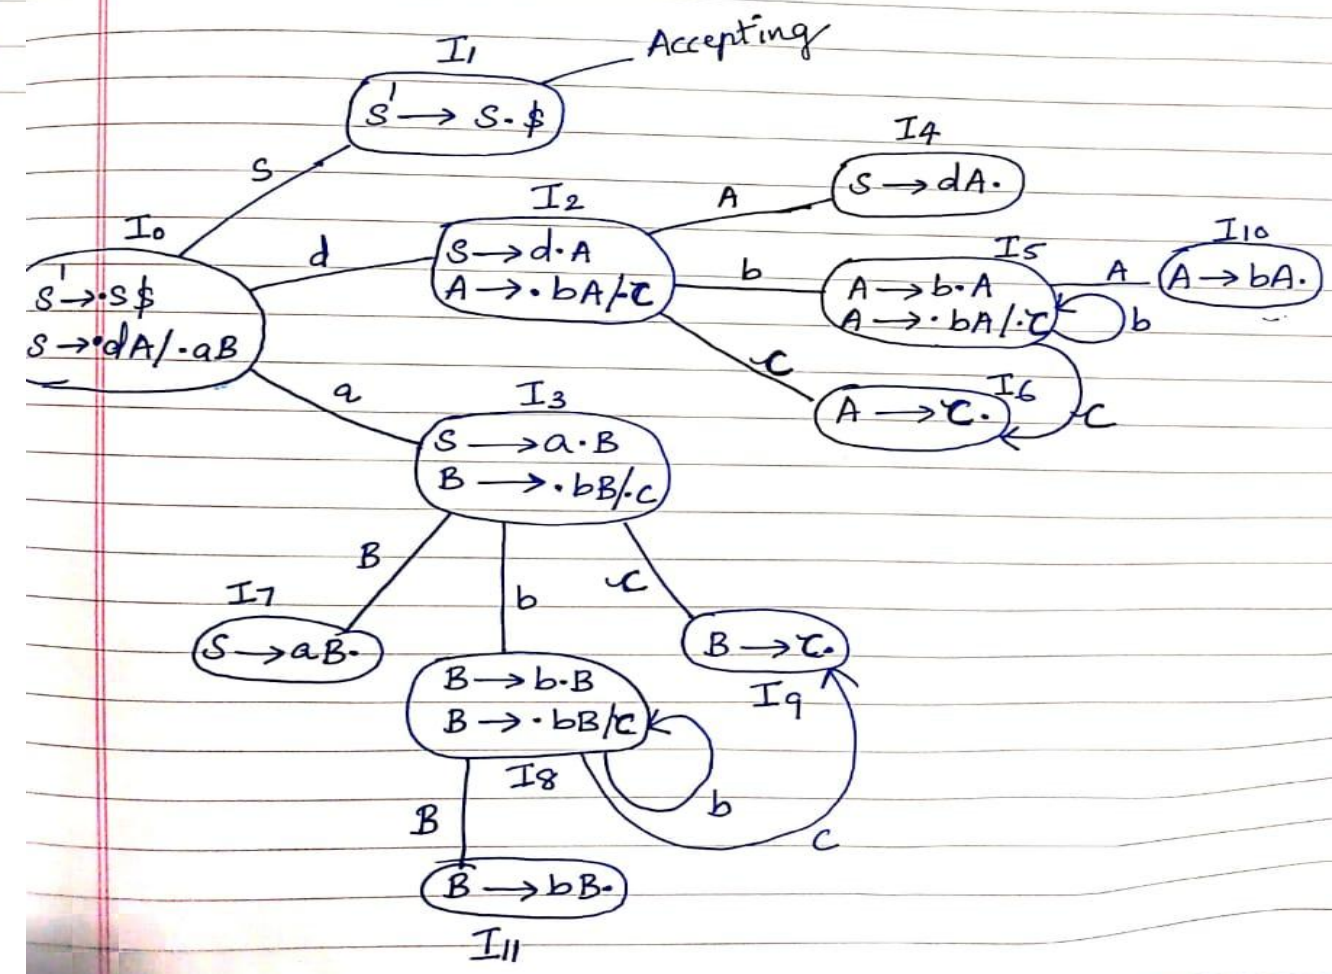 I1
Accepting
S' → S.$
S
I4
S → dA.
I0
S' → .S$
S → .dA/.aB
d
I2
S → d.A
A → .bA/.c
A
b
I5
A → b.A
A → .bA/.c
b
A
I10
A → bA.
c
I6
A → c.
c
a
I3
S → a.B
B → .bB/.c
B
I7
S → aB.
b
c
B → c.
I9
B → b.B
B → .bB/c
I8
b
c
B
B → bB.
I11